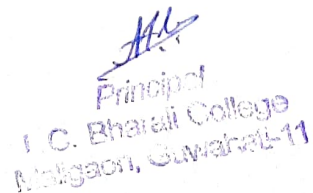 Principal
L.C. Bharali College
Maligaon, Guwahati-11